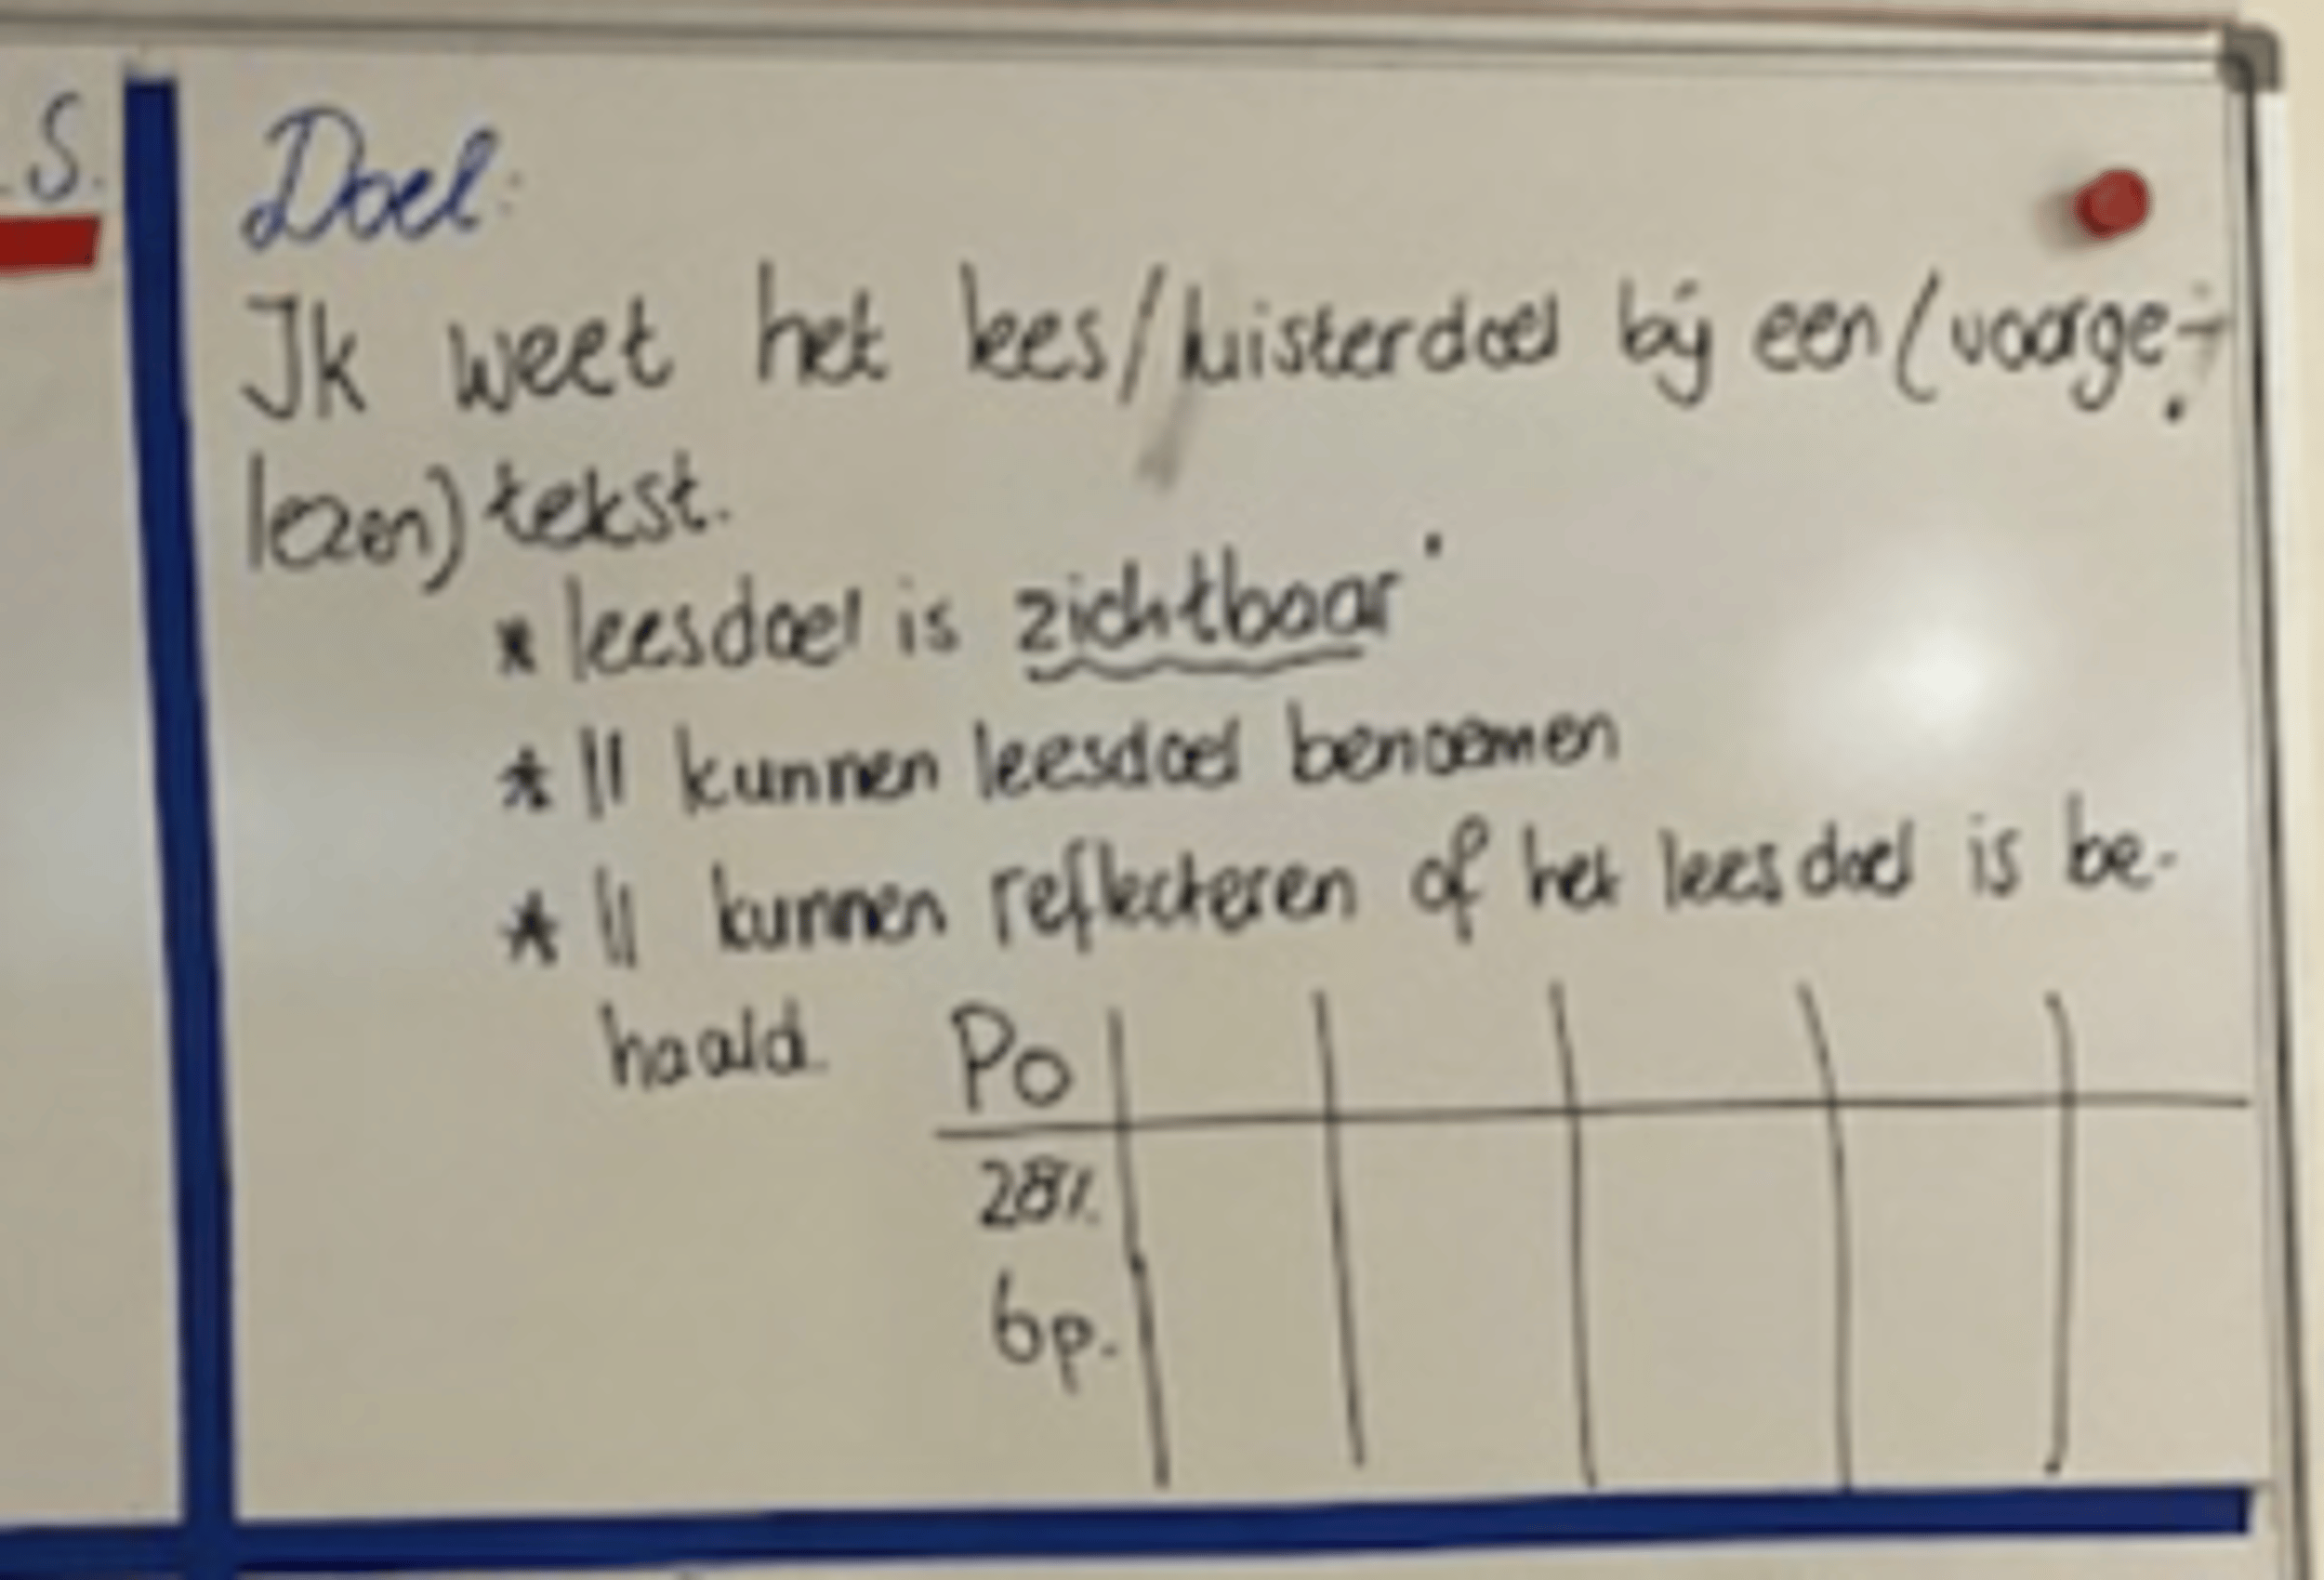 S.
Doel:
Ik weet het lees/luisterdoel bij een (voorge-
lezen) tekst.
* leesdoel is zichtbaar
* ll kunnen leesdoel benoemen
* ll kunnen reflecteren of het leesdoel is be-
haald.
Po
28%
6p.